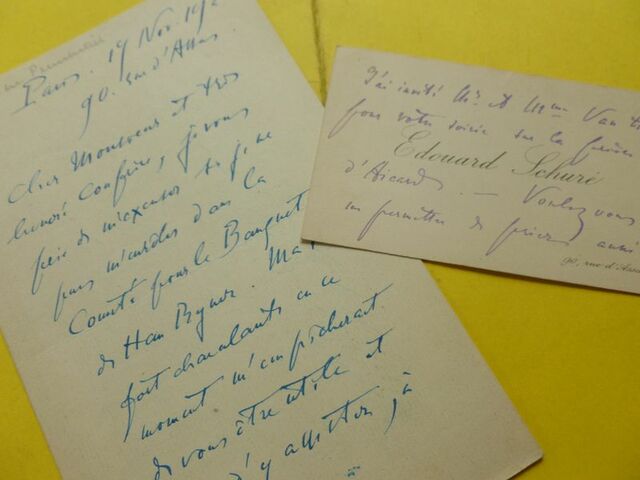 Paris. 19 Nov. 192
90. rue d'Assas
Cher Monsieur et très
honoré Confrère, je vous
prie de m'excuser si je ne
puis m'inscrire dans le
Comité pour le Banquet
de Han Ryner. Ma
fort chancelante en ce
moment m'empêcherait
de vous être utile et
d'y assister, j'a
J'ai invité Mr et Mme Van
pour votre soirée sur la
Edouard Schuré
d'Aicard. — Voulez vous
me permettre de prier aussi
90, rue d'Assas